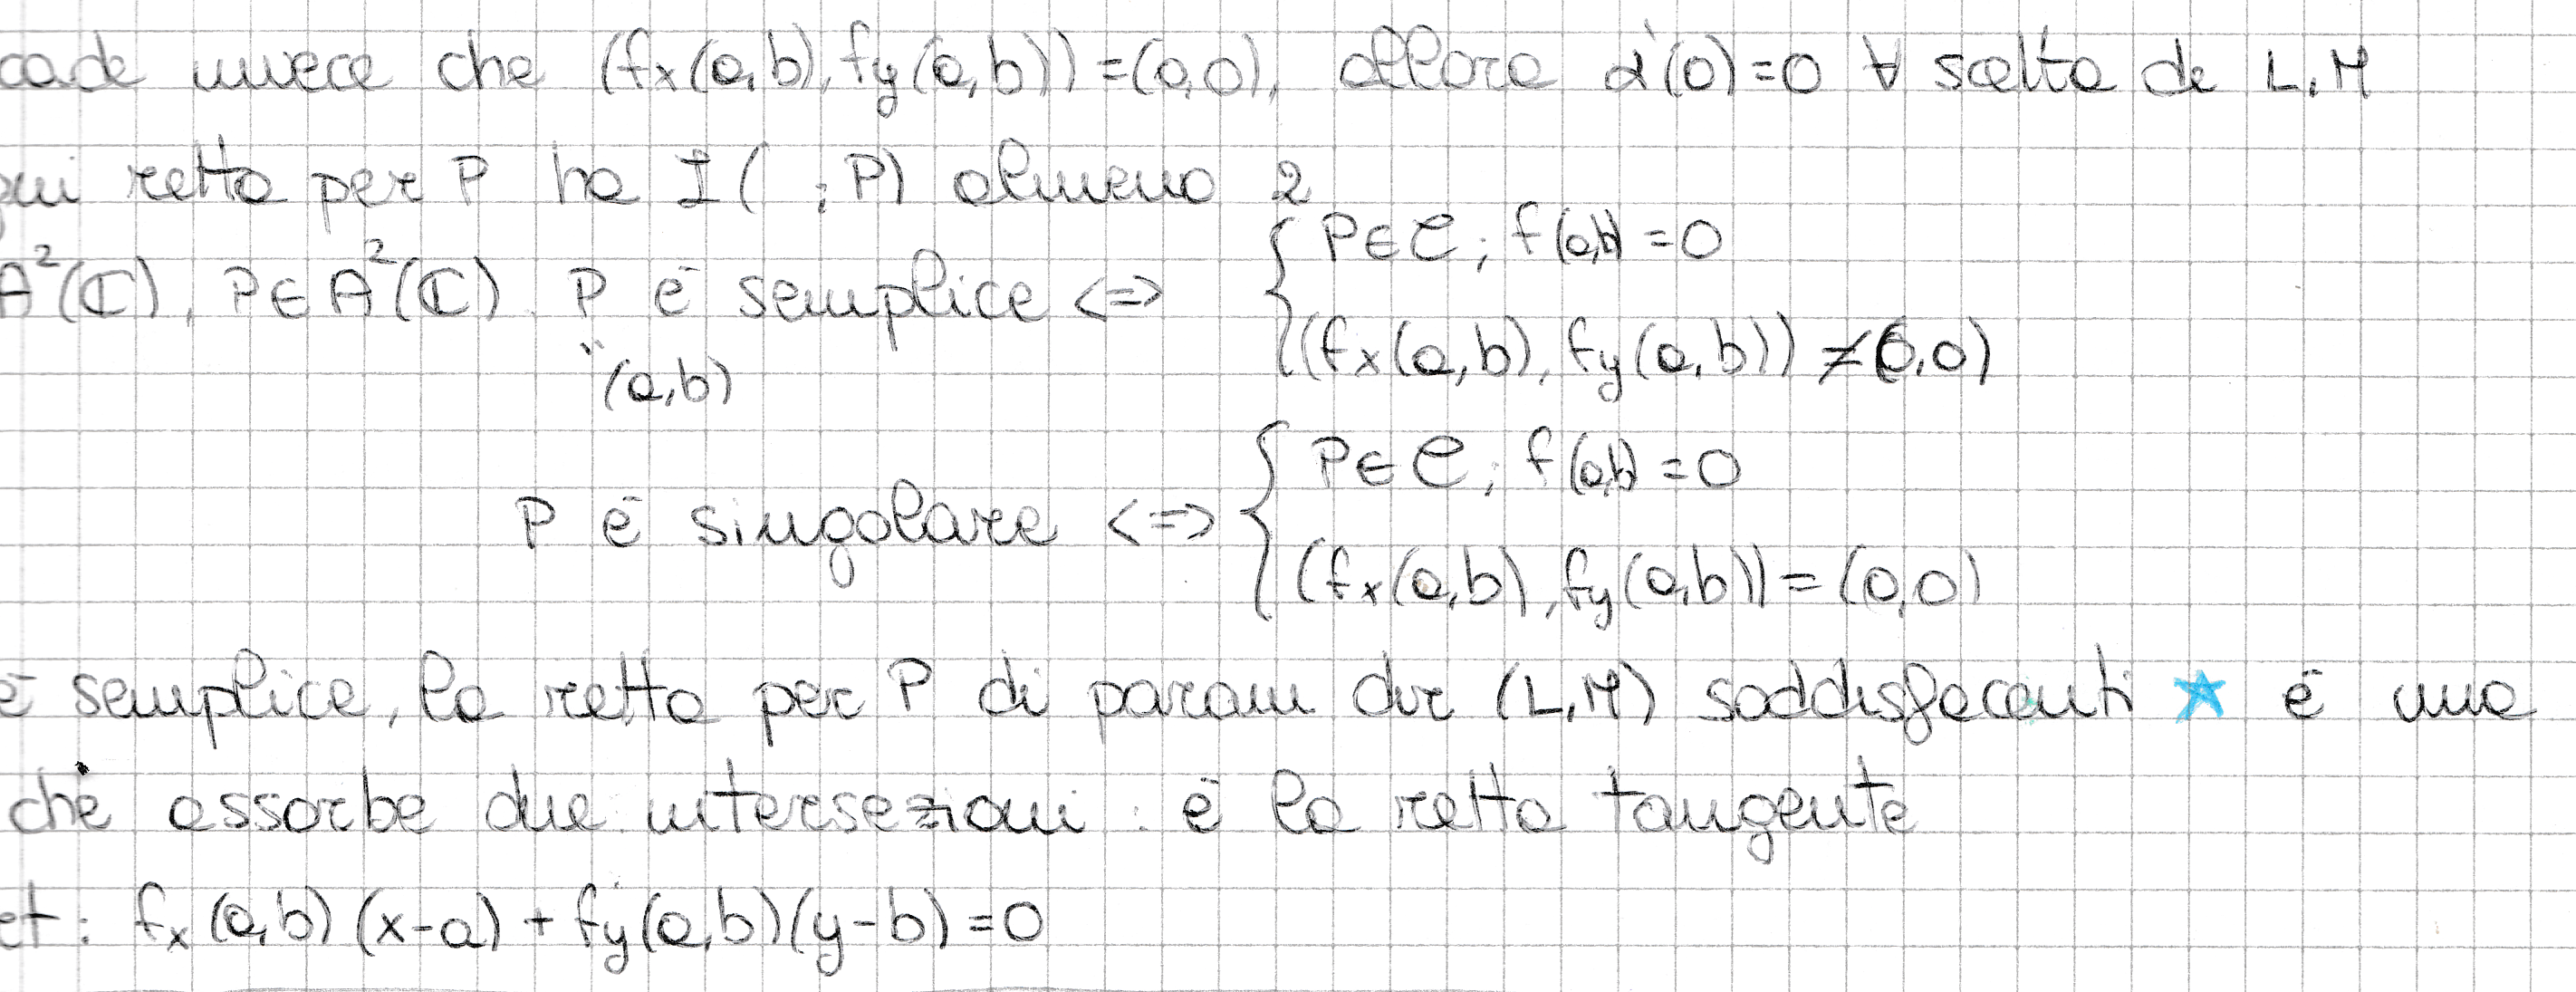 cade invece che (fx(a,b), fy(a,b)) = (0,0), allora α'(0)=0 ∀ scelta di L,M
qui retta per P ha I( ;P) almeno 2
A²(ℂ), P∈A²(ℂ). P è semplice <=> { P∈C; f(a,b)=0
(fx(a,b), fy(a,b)) ≠ (0,0)
"(a,b)
P è singolare <=> { P∈C; f(a,b)=0
(fx(a,b), fy(a,b)) = (0,0)
è semplice, la retta per P di param dir (L,M) soddisfacenti ★ è una
che assorbe due intersezioni : è la retta tangente
et: fx(a,b)(x-a) + fy(a,b)(y-b) = 0